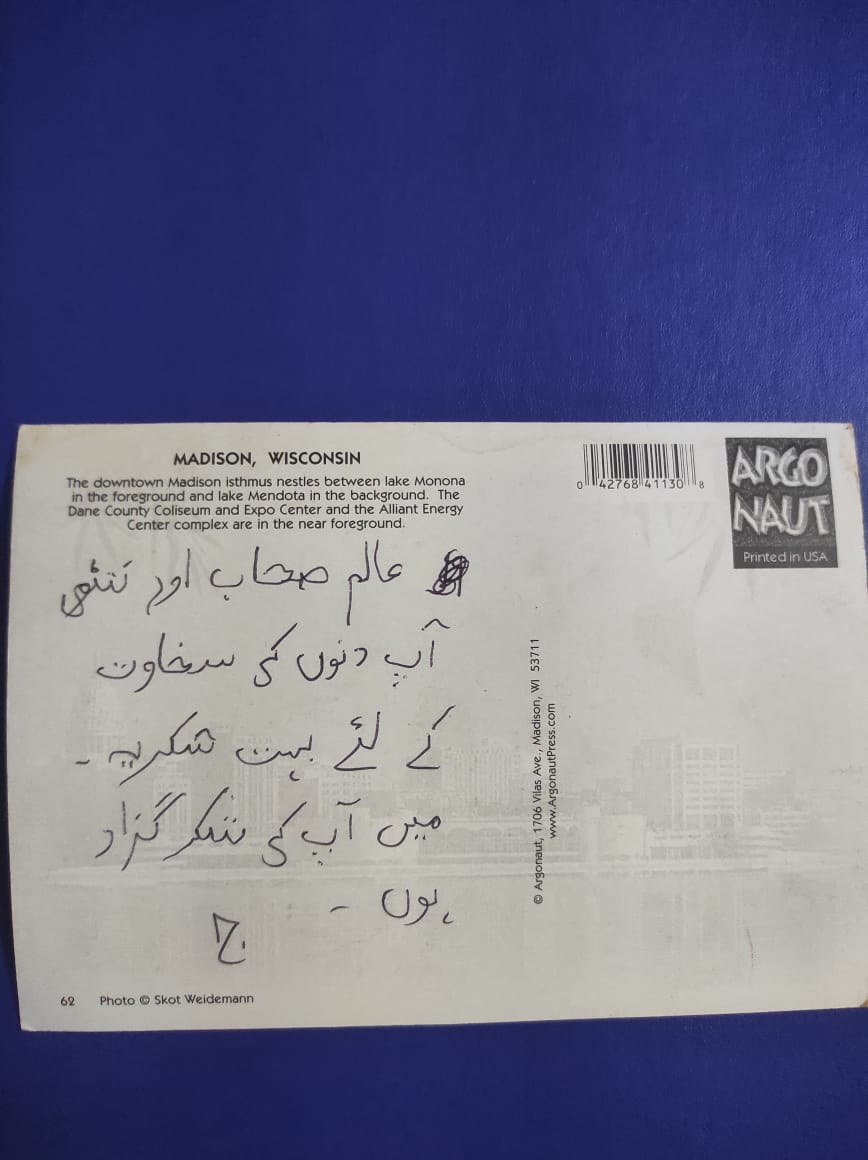 MADISON, WISCONSIN
The downtown Madison isthmus nestles between lake Monona
in the foreground and lake Mendota in the background. The
Dane County Coliseum and Expo Center and the Alliant Energy
Center complex are in the near foreground.
0 42768 41130 8
ARGO
NAUT
Printed in USA
عالم صحاب اور
آپ دنوں کی سخاوت
کے لئے بہت شکریہ ۔
میں آپ کی شکر گزار
ہوں ۔
ج
© Argonaut, 1706 Vilas Ave., Madison, WI 53711
www.ArgonautPress.com
62 Photo © Skot Weidemann